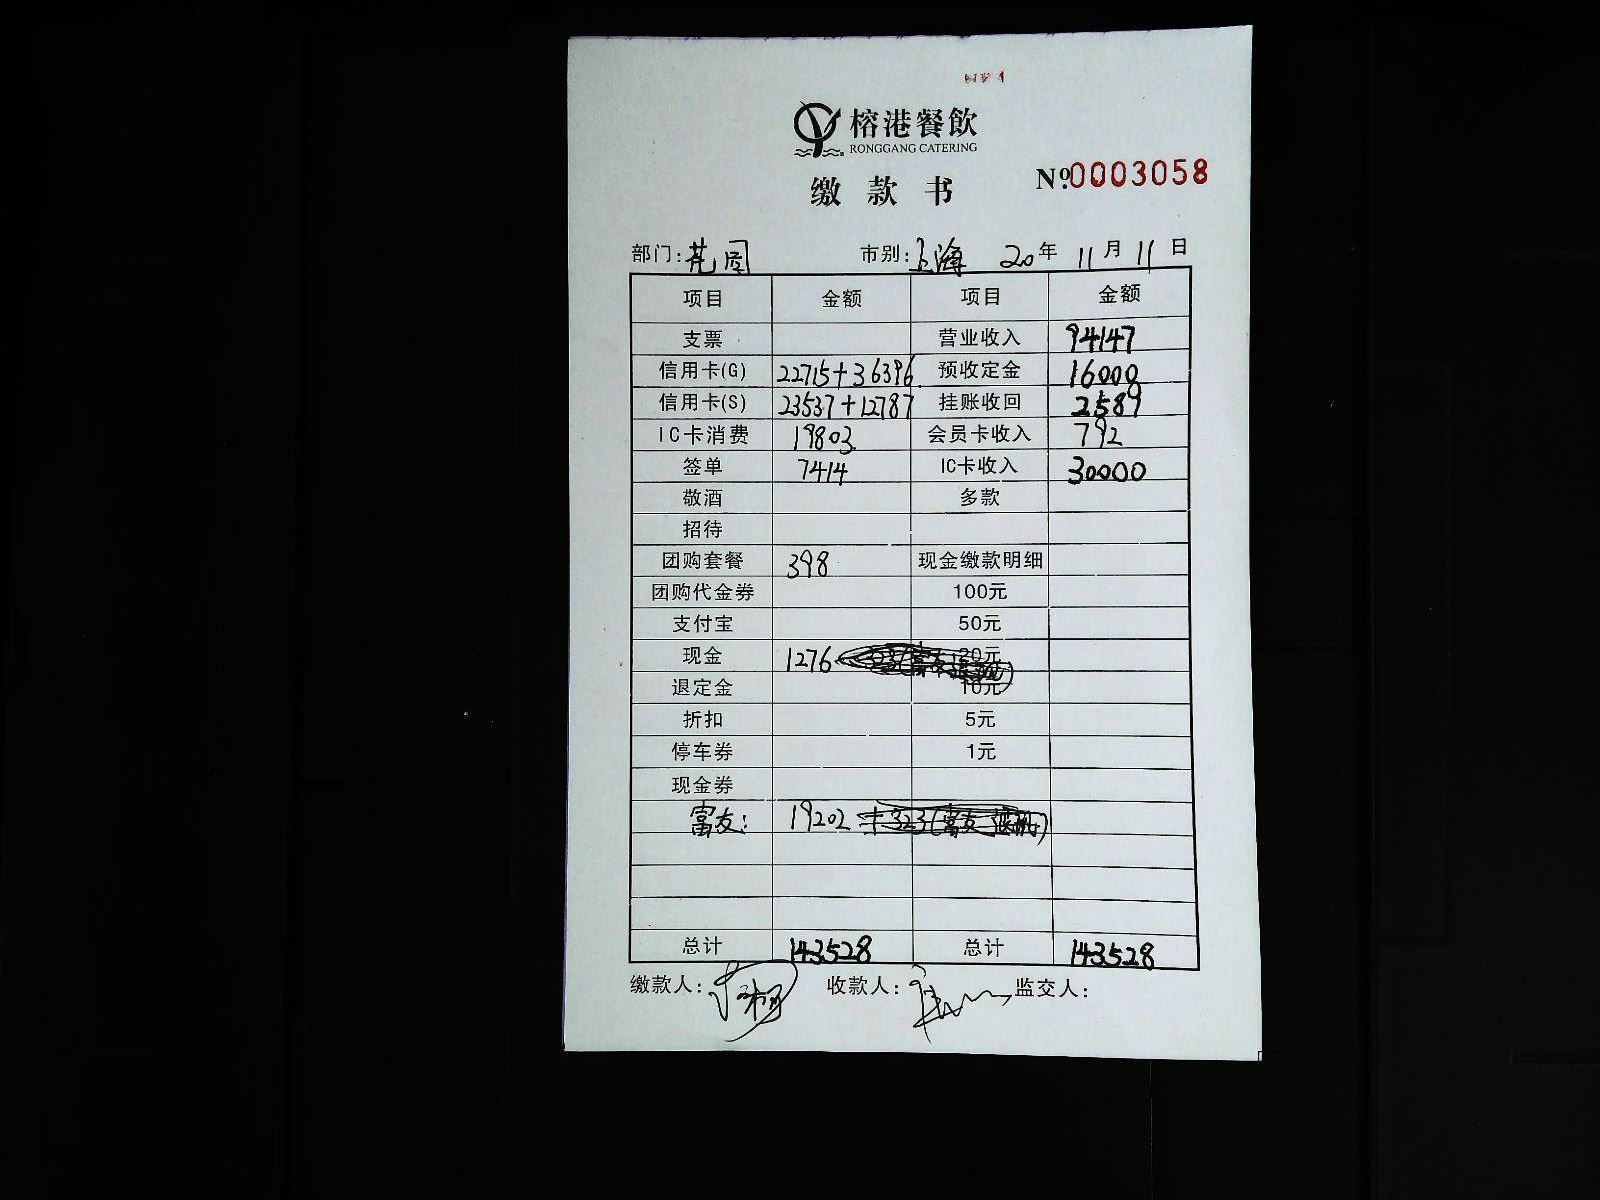 榕港餐飲
RONGGANG CATERING
缴款书
№0003058
部门:花园 市别:上海 20年 11月 11日
项目 金额 项目 金额
支票 营业收入 94147
信用卡(G) 22715+36396 预收定金 16000
信用卡(S) 23537+12787 挂账收回 2589
IC卡消费 19803 会员卡收入 792
签单 7414 IC卡收入 30000
敬酒 多款
招待
团购套餐 398 现金缴款明细
团购代金券 100元
支付宝 50元
现金 1276 20元
退定金 10元
折扣 5元
停车券 1元
现金券
富友: 19202 +323(富友
总计 143528 总计 143528
缴款人: 收款人: 监交人: